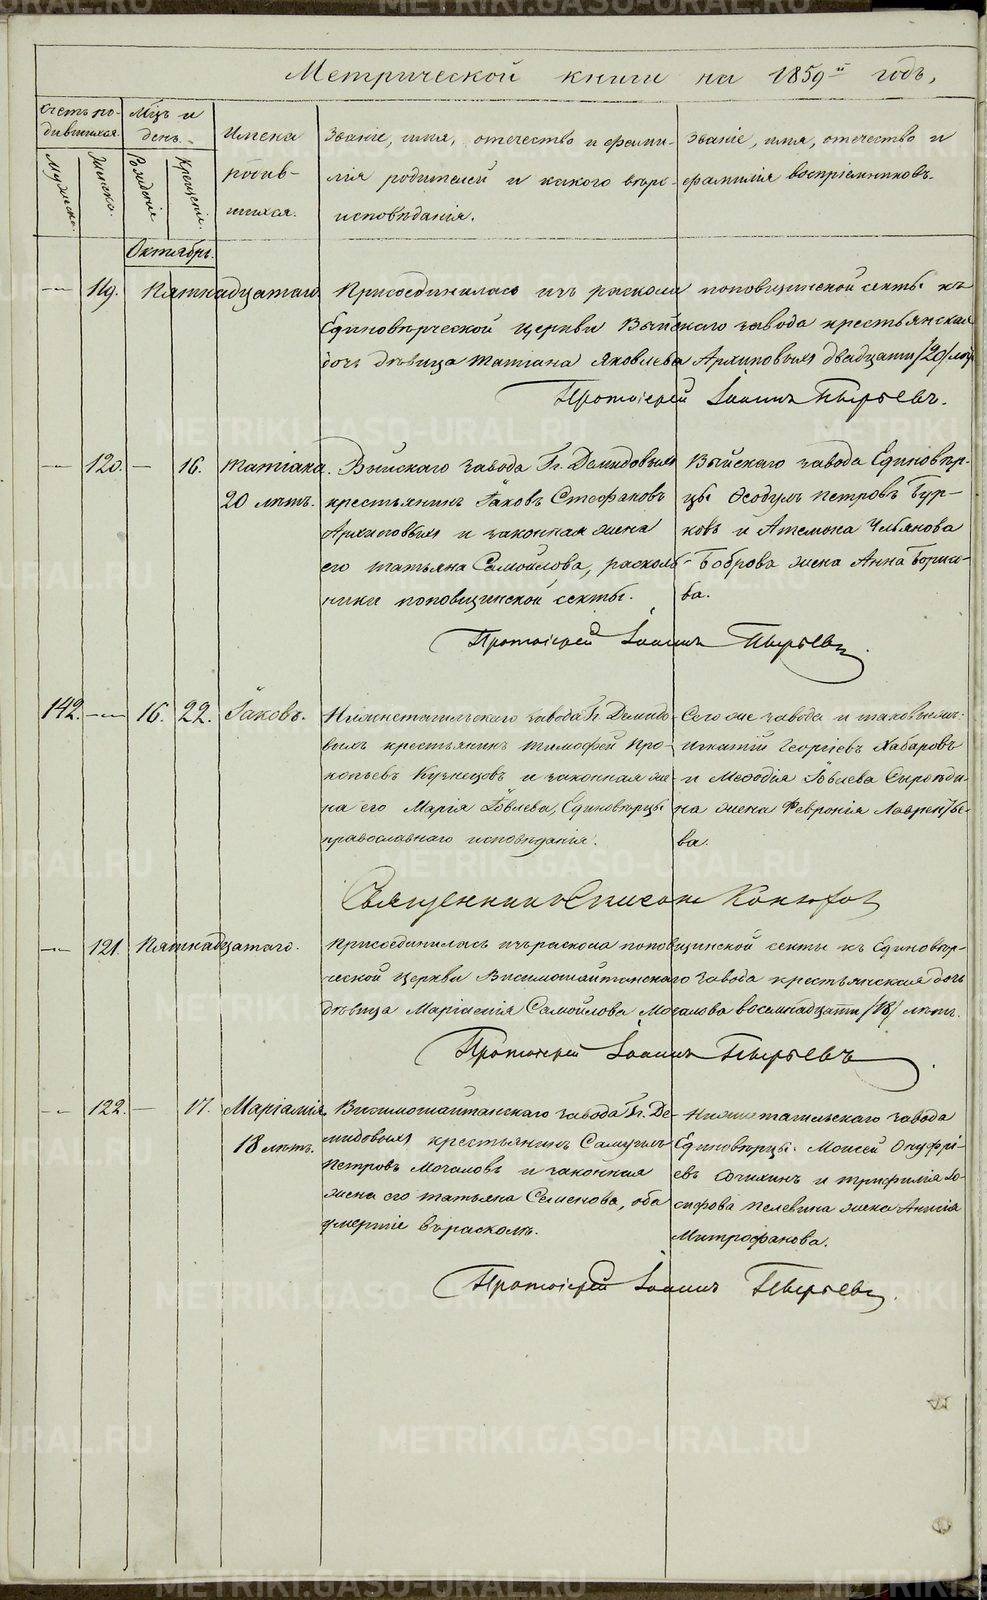 Метрической книги на 1859й годъ,
Счетъ ро-
дившихся.
Мужска.
Женска.
Мѣцъ и
день.
Рожденія.
Крещенія.
Имена
родив-
шихся.
Званіе, имя, отечество и фами-
лія родителей и какого вѣро-
исповѣданія.
Званіе, имя, отечество и
фамилія воспріемниковъ.
Октябрь.
— 119. Пятнадцатаго. Присоединилась изъ раскола поповщинской секты къ
Единовѣрческой церкви Выйскаго завода крестьянская
дочь дѣвица Татіана Яковлева Архиповыхъ двадцати /20/ лѣтъ
Протоіерей Іоаннъ Пырьевъ.
— 120. — 16. Татіана
20 лѣтъ.
Выйскаго завода Гг. Демидовыхъ
крестьянинъ Іаковъ Стефановъ
Архиповыхъ и законная жена
его Татьяна Самойлова, расколь-
ники поповщинской секты.
Выйскаго завода Единовѣр-
цы Ѳеодулъ Петровъ Бур-
ковъ и Артемона Ульянова
Боброва жена Анна Борисо-
ва.
Протоіерей Іоаннъ Пырьевъ.
142. — 16. 22. Іаковъ.
Нижнетагильскаго завода Гг. Демидо-
выхъ крестьянинъ Тимофей Про-
копьевъ Кузнецовъ и законная же-
на его Марія Іовлева, Единовѣрцы
православнаго исповѣданія.
Сего же завода и таковыежъ:
Игнатій Георгіевъ Хабаровъ
и Меѳодія Іовлева
жена Февронія Лаврентье-
ва.
Священникъ Симеонъ Конюхов
— 121. Пятнадцатаго. Присоединилась изъ раскола поповщинской секты къ Единовѣр-
ческой церкви Висимошайтанскаго завода крестьянская дочь
дѣвица Маріамія Самойлова Мочалова восемнадцати /18/ лѣтъ.
Протоіерей Іоаннъ Пырьевъ
— 122. — 17. Маріамія
18 лѣтъ.
Висимошайтанскаго завода Гг. Де-
мидовыхъ крестьянинъ Самуилъ
Петровъ Мочаловъ и законная
жена его Татьяна Семенова, оба
умершіе въ расколѣ.
Нижнетагильскаго завода
Единовѣрцы: Моисей Онуфрі-
евъ и Трифилія Іо-
сифова Пелевина жена Анисія
Митрофанова.
Протоіерей Іоаннъ Пырьевъ.
METRIKI.GASO-URAL.RU